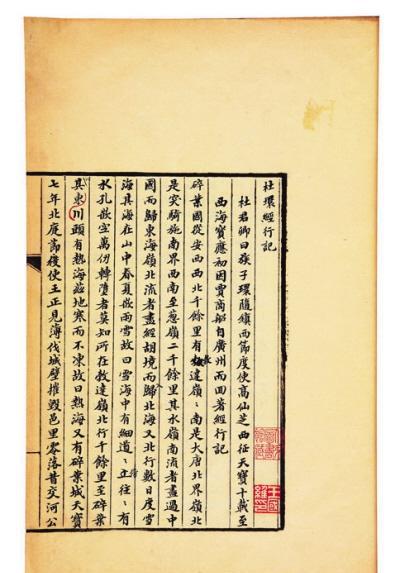 杜環經行記
杜君卿曰族子環隨鎮西節度使高仙芝西征天寶十載至
西海寶應初因賈商船自廣州而回著經行記
碎葉國從安西西北千餘里有勃達嶺嶺南是大唐北界嶺北
是突騎施南界西南至葱嶺二千餘里其水嶺南流者盡過中
國而歸東海嶺北流者盡經胡境而歸北海又北行數日度雪
海其海在山中春夏嵗雨雪故曰雪海中有細道道往往有
水孔嵌空萬仞轉墮者莫知所在敎達嶺北行千餘里至碎葉
其東川頭有熱海茲地寒而不凍故曰熱海又有碎葉城天寶
七年北庭節度使王正見薄伐城壁摧毀邑里零落昔交河公
王國維